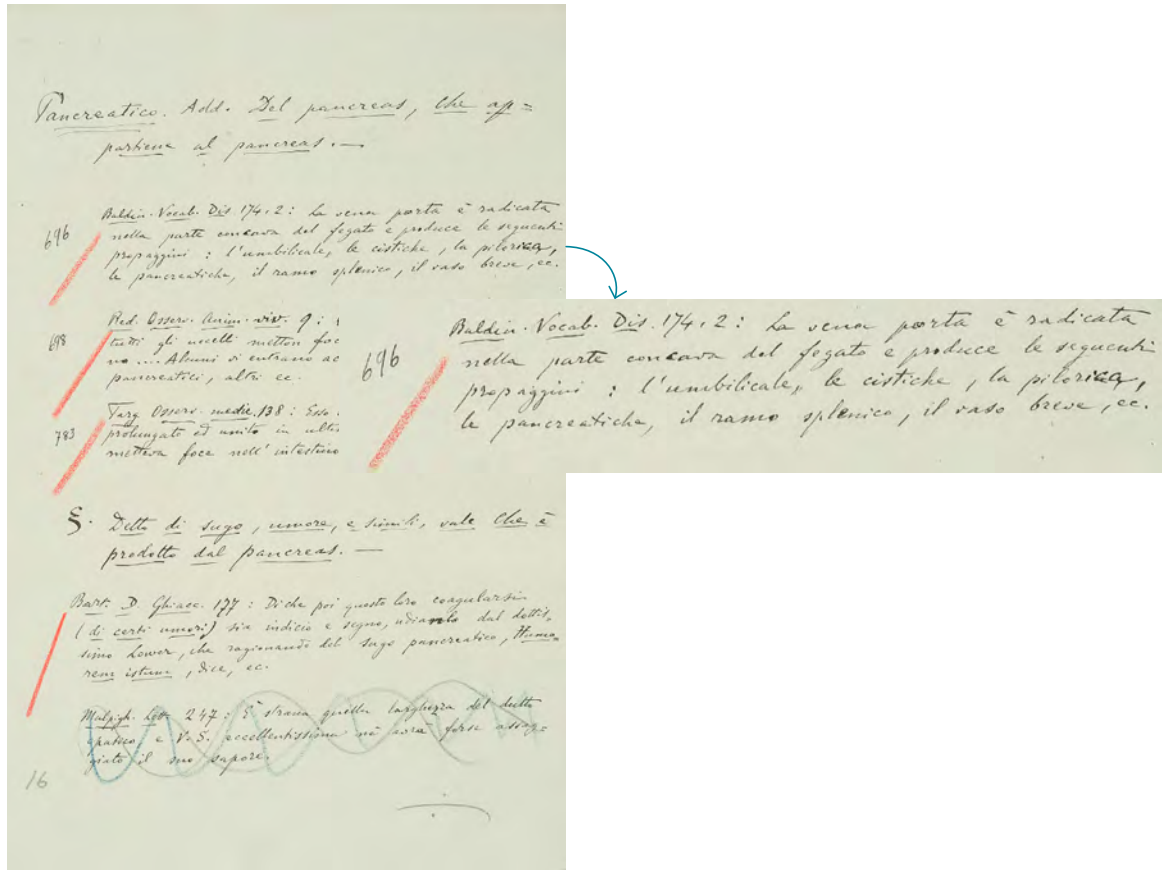 Pancreatico. Add. Del pancreas, che ap=
partiene al pancreas. —
696
Baldin. Vocab. Dis. 174. 2: La vena porta è radicata
nella parte concava del fegato e produce le seguenti
propaggini : l'umbilicale, le cistiche, la pilorica,
le pancreatiche, il ramo splenico, il vaso breve, ec.
698
Red. Osserv. Anim. viv. 9:
tutti gli uccelli metton foc
no ... Alcuni vi entrano ac
pancreatici, altri ec.
783
Targ. Osserv. medic. 138: Esso
prolungato ed unito in altro
metteva foce nell'intestino
696
Baldin. Vocab. Dis. 174. 2: La vena porta è radicata
nella parte concava del fegato e produce le seguenti
propaggini : l'umbilicale, le cistiche, la pilorica,
le pancreatiche, il ramo splenico, il vaso breve, ec.
§. Detto di sugo, umore, e simili, vale Che è
prodotto dal pancreas. —
Bart. D. Ghiacc. 177: Di che poi questo loro coagularsi
(di certi umori) sia indicio e segno, udianlo dal dottis,
simo Lower, che ragionando del sugo pancreatico, Humo,
rem istum, dice, ec.
Malpigh. Lett. 247: È strana quella larghezza del dutto
epatico e V. S. eccellentissima ne avrà forse assag=
giato il suo sapore.
16